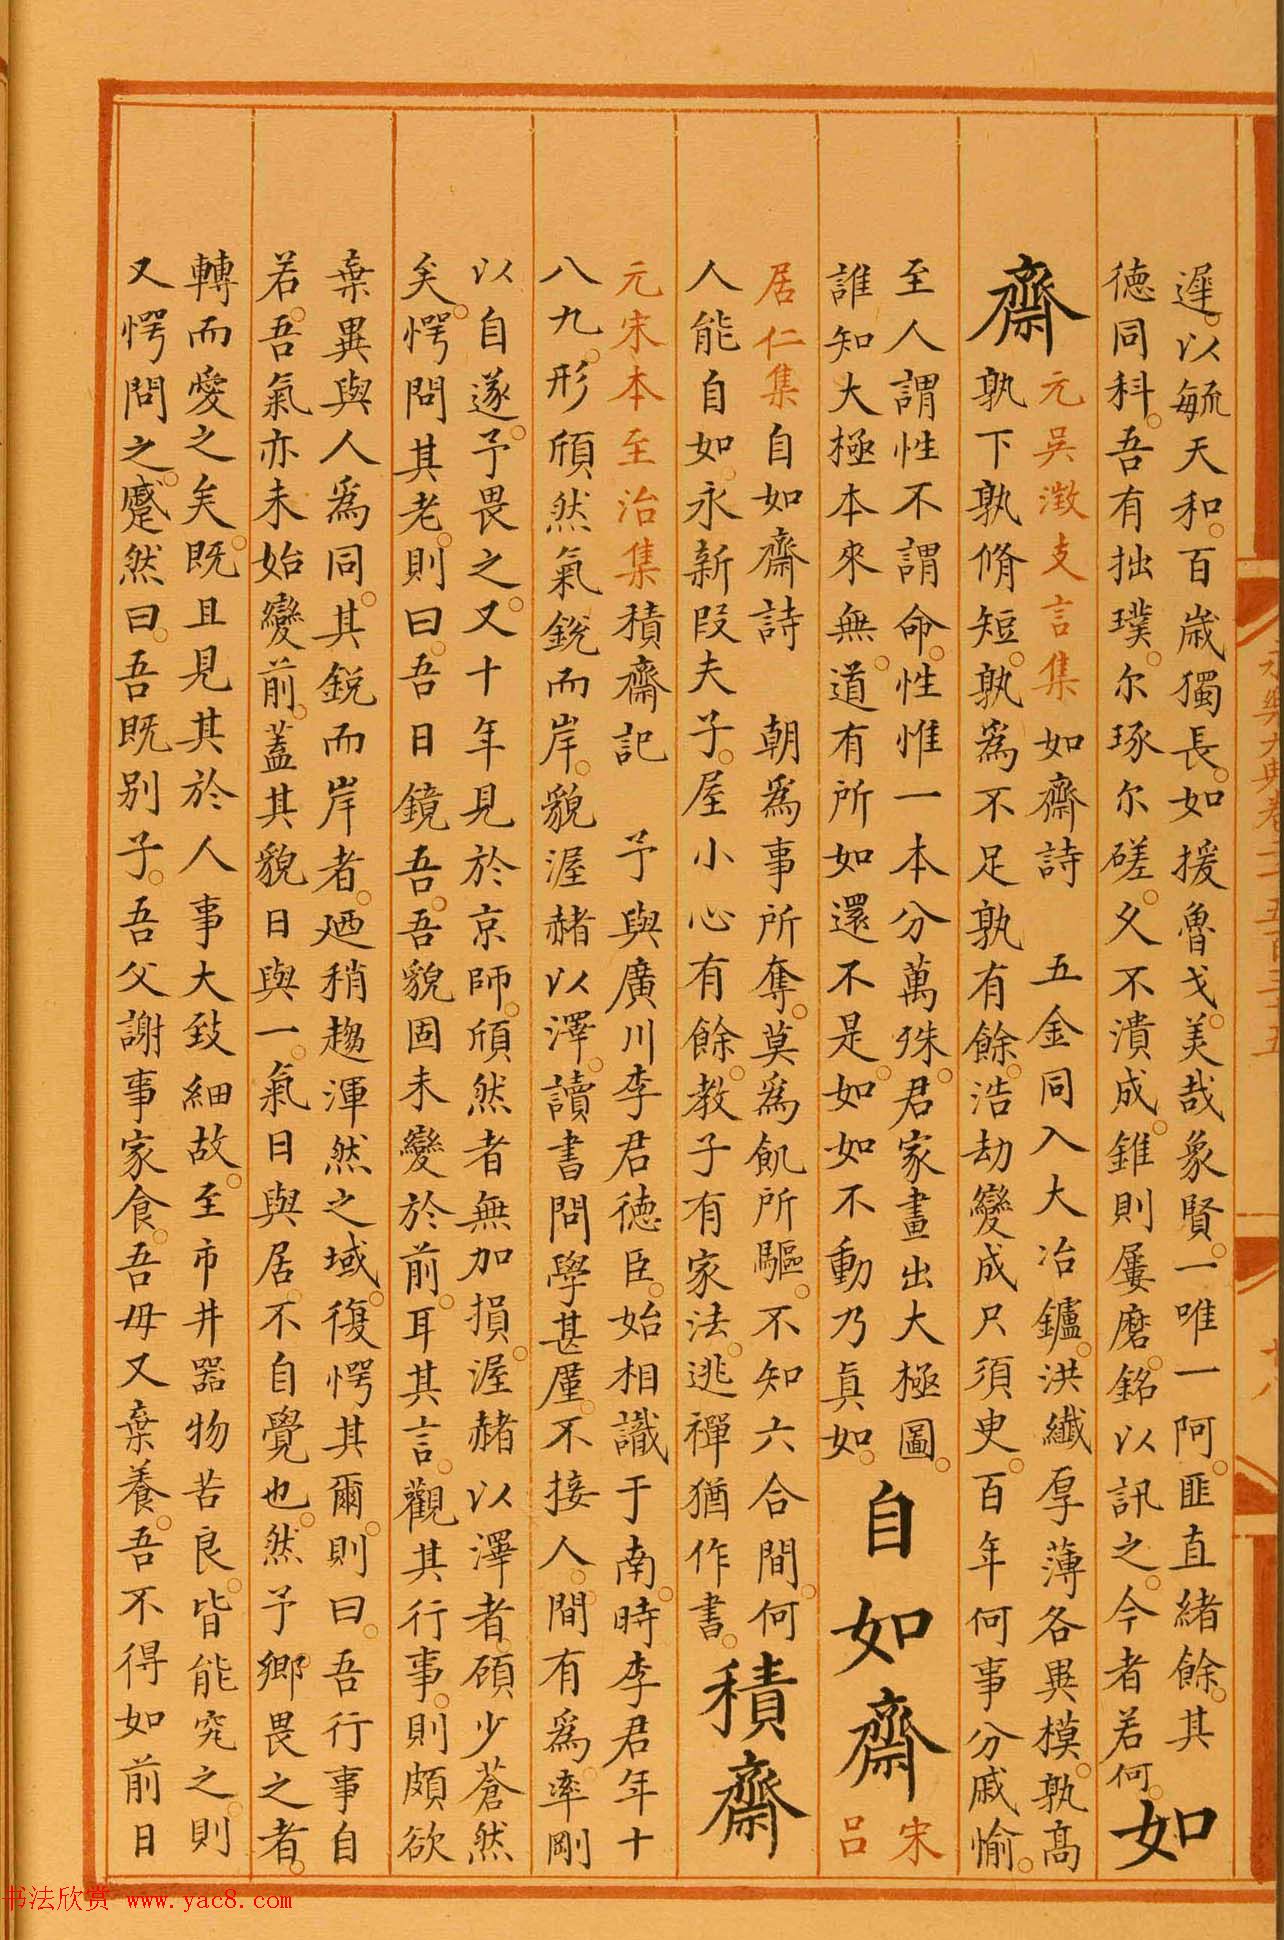 遲。以毓天和。百歲獨長。如援魯戈。美哉象賢。一唯一阿。匪直緒餘。其
德同科。吾有拙璞。尔琢尔磋。久不潰成。錐則屢磨。銘以訊之。今者若何。
如
齋
元吳澂支言集如齋詩 五金同入大冶鑪。洪纖厚薄各異模。孰高
孰下孰脩短。孰為不足孰有餘。浩劫變成只須臾。百年何事分戚愉。
至人謂性不謂命。性惟一本分萬殊。君家畫出大極圖。
誰知大極本來無。道有所如還不是。如如不動乃真如。
自如齋
宋
呂
居仁集自如齋詩 朝為事所奪。莫為飢所驅。不知六合間。何
人能自如。永新段夫子。屋小心有餘。教子有家法。逃禪猶作書。
積齋
元宋本至治集積齋記 予與廣川李君德臣。始相識于南。時李君年十
八九。形頎然氣銳而岸。貌渥赭以澤。讀書問學甚厲。不接人。間有為。率剛
以自遂。予畏之。又十年見於京師。頎然者無加損。渥赭以澤者。頎少蒼然
矣。愕問其老。則曰。吾日鏡吾。吾貌固未變於前。耳其言。觀其行事。則頗欲
棄異與人為同。其銳而岸者。廼稍趨渾然之域。復愕其爾。則曰。吾行事自
若。吾氣亦未始變前。蓋其貌日與一。氣日與居。不自覺也。然予鄉畏之者。
轉而愛之矣。既且見其於人事大致細故。至市井器物苦良。皆能究之。則
又愕問之。蹙然曰。吾既別子。吾父謝事家食。吾母又棄養。吾不得如前日
永樂大典卷二千五百三十五
十八
书法欣赏 www.yac8.com